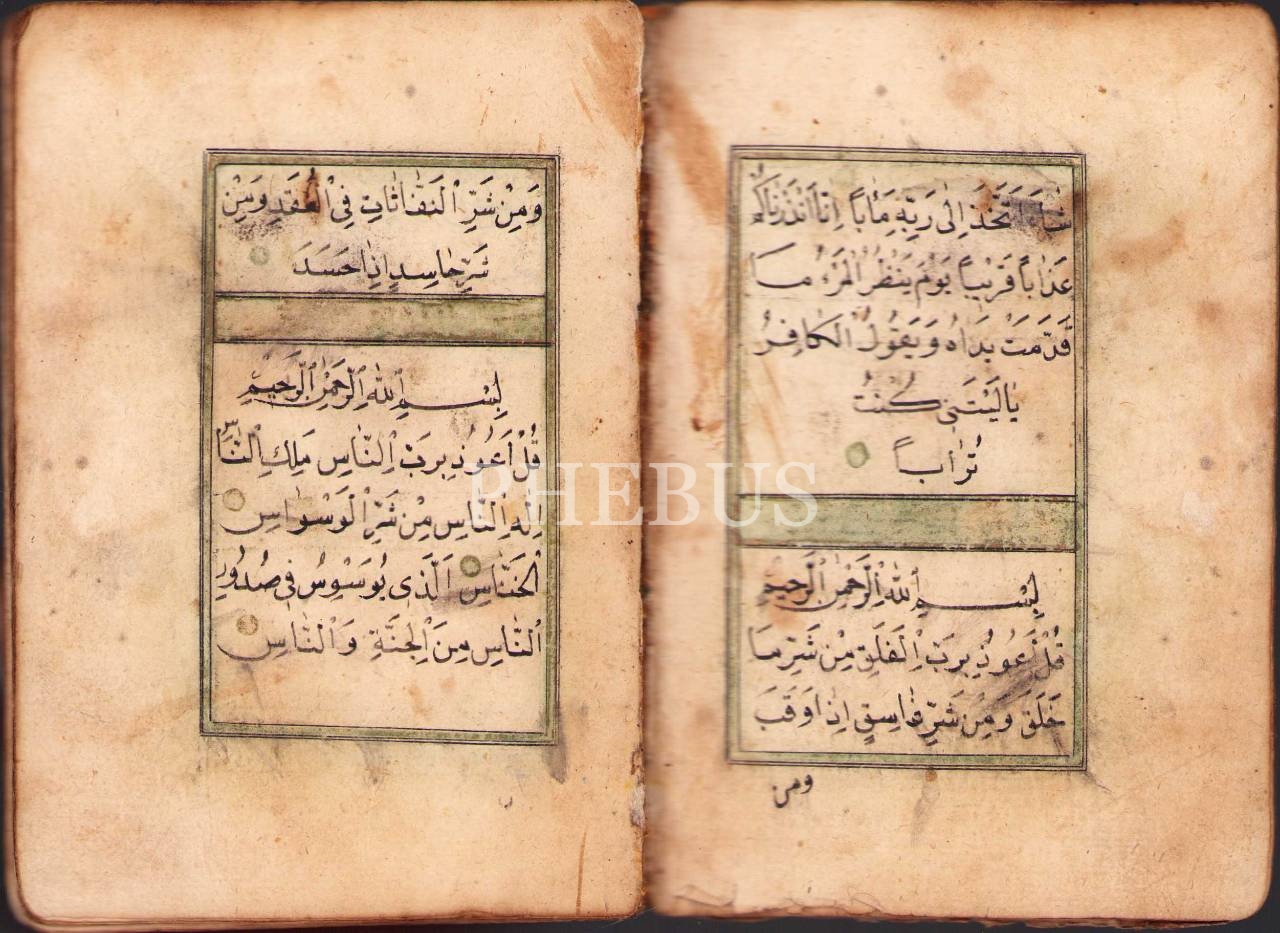 شَاءَ اتَّخَذَ اِلٰى رَبِّهِ مَاٰباً اِنَّا اَنْذَرْنَاكُمْ
عَذَاباً قَرٖيباً يَوْمَ يَنْظُرُ الْمَرْءُ مَا
قَدَّمَتْ يَدَاهُ وَيَقُولُ الْكَافِرُ
يَالَيْتَنٖى كُنْتُ
تُرَاباً
بِسْمِ اللّٰهِ الرَّحْمٰنِ الرَّحٖيمِ
قُلْ اَعُوذُ بِرَبِّ الْفَلَقِ مِنْ شَرِّ مَا
خَلَقَ وَمِنْ شَرِّ غَاسِقٍ اِذَا وَقَبَ
ومن
وَمِنْ شَرِّ النَّفَّاثَاتِ فِى الْعُقَدِ وَمِنْ
شَرِّ حَاسِدٍ اِذَا حَسَدَ
بِسْمِ اللّٰهِ الرَّحْمٰنِ الرَّحٖيمِ
قُلْ اَعُوذُ بِرَبِّ النَّاسِ مَلِكِ النَّاسِ
اِلٰهِ النَّاسِ مِنْ شَرِّ الْوَسْوَاسِ
الْخَنَّاسِ اَلَّذٖى يُوَسْوِسُ فٖى صُدُورِ
النَّاسِ مِنَ الْجِنَّةِ وَالنَّاسِ
PHEBUS